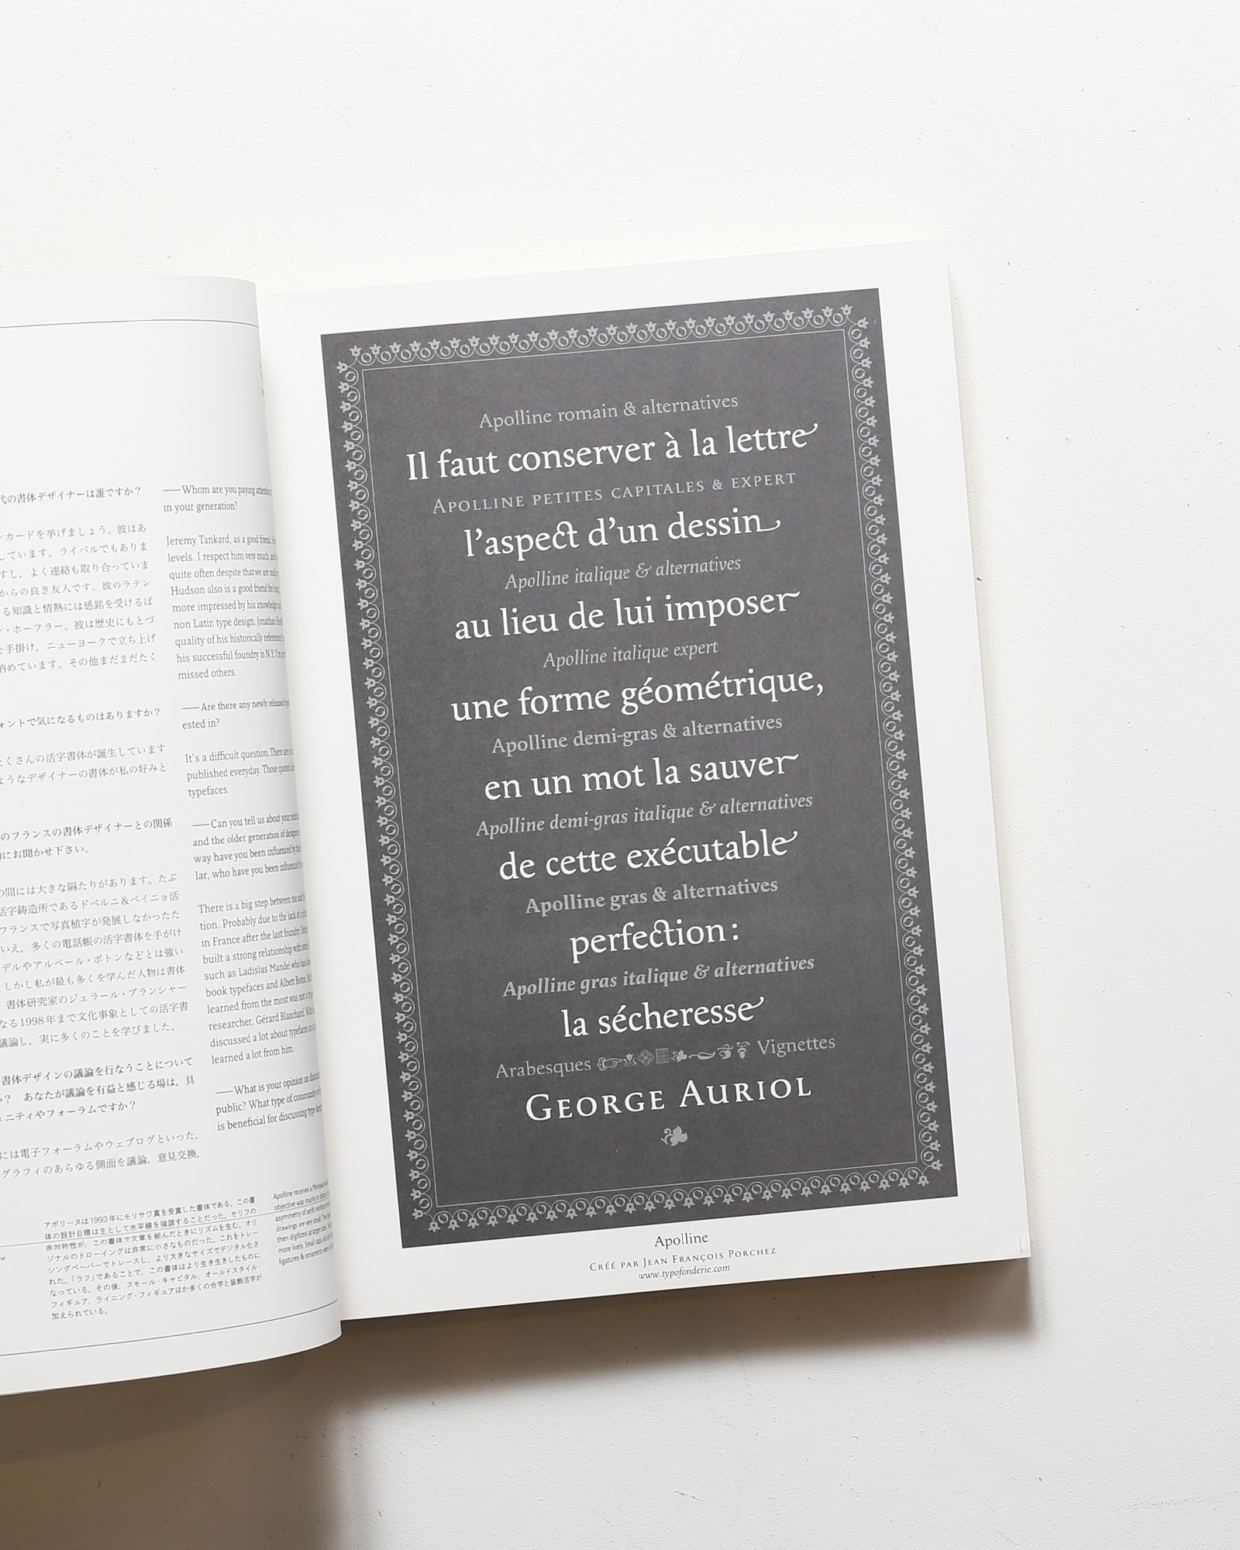 代の書体デザイナーは誰ですか？
カードを挙げましょう。彼はあ
しています。ライバルでもありま
すし、よく連絡も取り合っていま
からの良き友人です。彼のラテン
る知識と情熱には感銘を受けるば
・ホーフラー。彼は歴史にもとづ
を手掛け、ニューヨークで立ち上げ
納めています。その他まだまだたく
ォントで気になるものはありますか？
たくさんの活字書体が誕生しています
ようなデザイナーの書体が私の好みと
のフランスの書体デザイナーとの関係
にお聞かせ下さい。
の間には大きな隔たりがあります。たぶ
活字鋳造所であるドベルニ&ペイニョ活
フランスで写真植字が発展しなかったた
いえ、多くの電話帳の活字書体を手がけ
デルやアルベール・ボトンなどとは強い
しかし私が最も多くを学んだ人物は書体
書体研究家のジェラール・ブランシャー
なる1998年まで文化事象としての活字書
議論し、実に多くのことを学びました。
書体デザインの議論を行なうことについて
？　あなたが議論を有益と感じる場は、具
ュニティやフォーラムですか？
には電子フォーラムやウェブログといった、
グラフィのあらゆる側面を議論、意見交換、
——Whom are you paying
in your generation?
Jeremy Tankard, as a good friend.
levels. I respect him very much,
quite often despite that we are
Hudson also is a good friend for
more impressed by his knowledge
non Latin type design. Jonathan
quality of his historically
his successful foundry in N.Y.
missed others.
——Are there any newly released
ested in?
It's a difficult question. There
published everyday. Those
typefaces.
——Can you tell us about your
and the older generation of
way have you been influenced by
lar, who have you been influenced
There is a big step between me
tion. Probably due to the lack of
in France after the last foundry.
built a strong relationship with
such as Ladislas Mandel who
book typefaces and Albert
learned from the most was not a
researcher, Gérard Blanchard.
discussed a lot about typefaces
learned a lot from him.
——What is your opinion on
public? What type of
is beneficial for discussing type
アポリーヌは1993年にモリサワ賞を受賞した書体である。この書
体の設計目標は主として水平線を強調することだった。セリフの
非対称性が、この書体で文章を組んだときにリズムを生む。オリ
ジナルのドローイングは非常に小さなものだった。これをトレー
シングペーパーでトレースし、より大きなサイズでデジタル化さ
れた。「ラフ」であることで、この書体はより生き生きしたものに
なっている。その後、スモール・キャピタル、オールドスタイル・
フィギュア、ライニング・フィギュアほか多くの合字と装飾活字が
加えられている。
Apolline received a
objective was mainly to
asymmetry of serifs
drawings are very small. The
then digitized at larger
more lively. Small caps,
ligatures & ornaments
Apolline romain & alternatives
Il faut conserver à la lettre
Apolline petites capitales & expert
l'aspect d'un dessin
Apolline italique & alternatives
au lieu de lui imposer
Apolline italique expert
une forme géométrique,
Apolline demi-gras & alternatives
en un mot la sauver
Apolline demi-gras italique & alternatives
de cette exécutable
Apolline gras & alternatives
perfection :
Apolline gras italique & alternatives
la sécheresse
Arabesques Vignettes
George Auriol
Apolline
Créé par Jean François Porchez
www.typofonderie.com